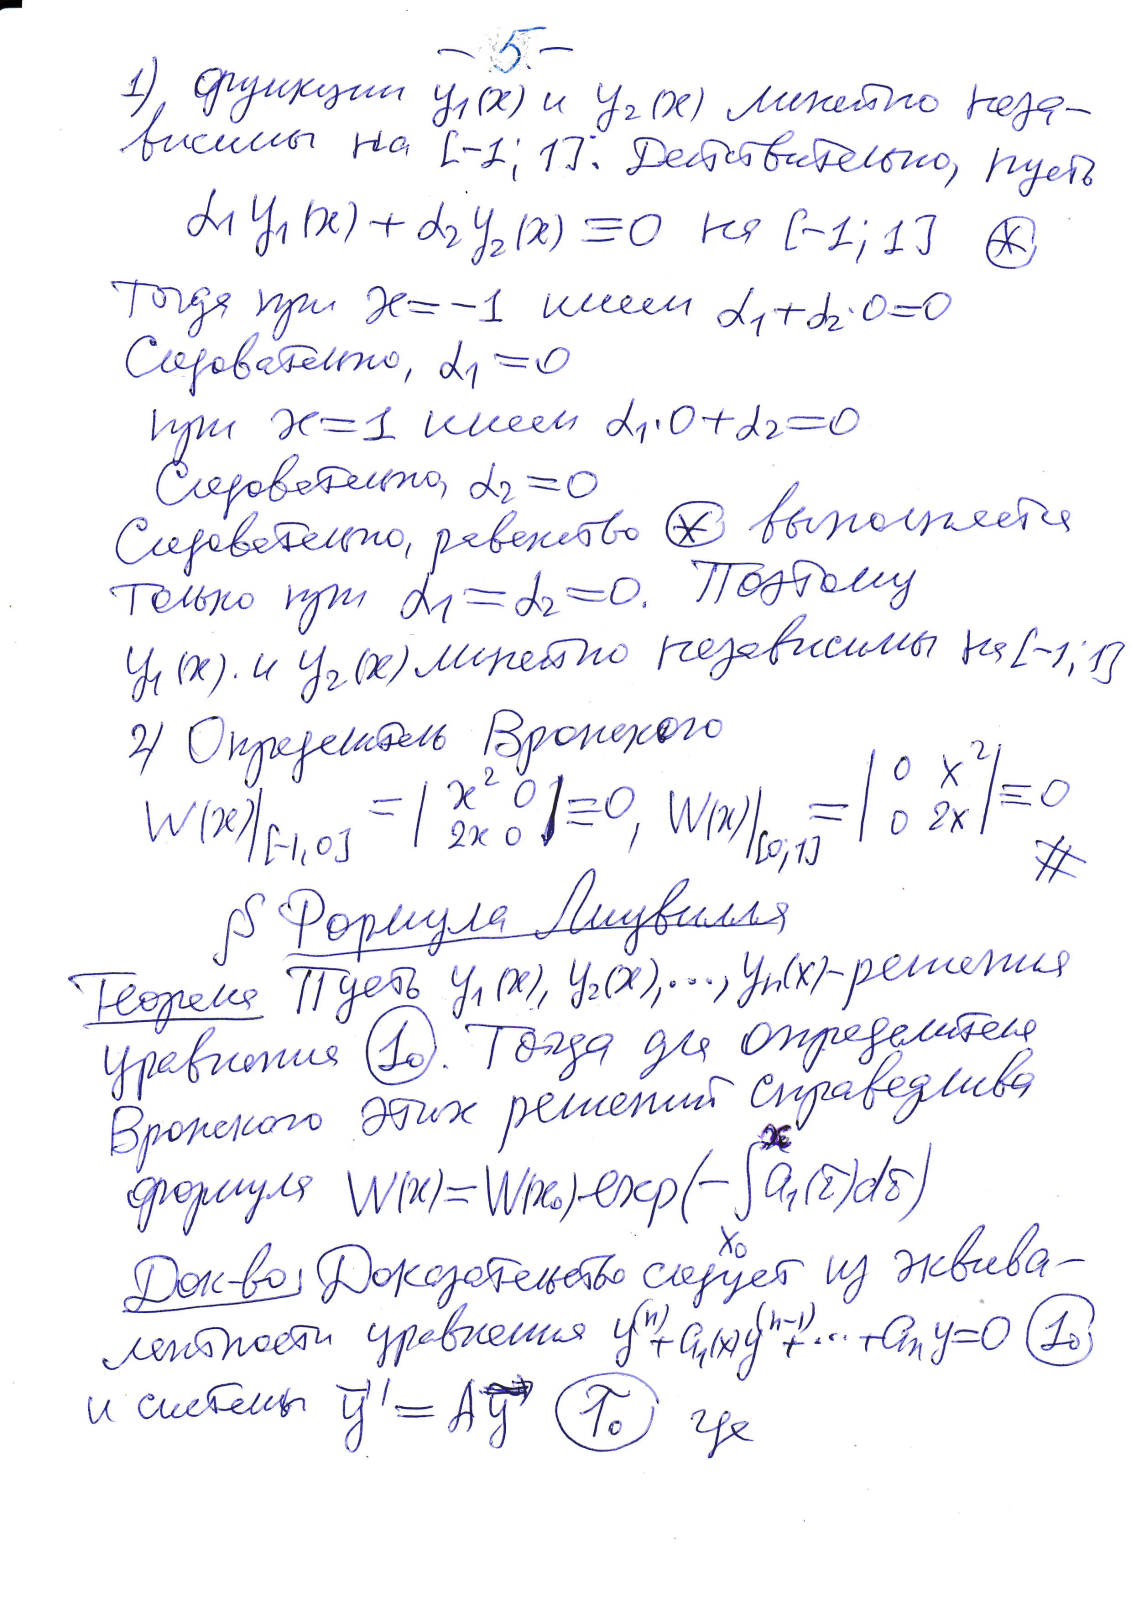 – 5 –
1) Функции y₁(x) и y₂(x) линейно неза-
висимы на [-1; 1]. Действительно, пусть
α₁y₁(x) + α₂y₂(x) ≡ 0 на [-1; 1] (*)
Тогда при x = -1 имеем α₁ + α₂·0 = 0
Следовательно, α₁ = 0
при x = 1 имеем α₁·0 + α₂ = 0
Следовательно, α₂ = 0
Следовательно, равенство (*) выполняется
только при α₁ = α₂ = 0. Поэтому
y₁(x) и y₂(x) линейно независимы на [-1; 1]
2) Определитель Вронского
W(x)|[-1,0] = |x² 0; 2x 0| ≡ 0, W(x)|[0,1] = |0 x²; 0 2x| ≡ 0
#
§ Формула Лиувилля
Теорема Пусть y₁(x), y₂(x), ..., yₙ(x) - решения
уравнения (1₀). Тогда для определителя
Вронского этих решений справедлива
формула W(x) = W(x₀)·exp(-∫ₓ₀ˣ a₁(τ)dτ)
Док-во: Доказательство следует из эквива-
лентности уравнения y⁽ⁿ⁾ + a₁(x)y⁽ⁿ⁻¹⁾ + ... + aₙy = 0 (1₀)
и системы y⃗' = Ay⃗ (T₀) где